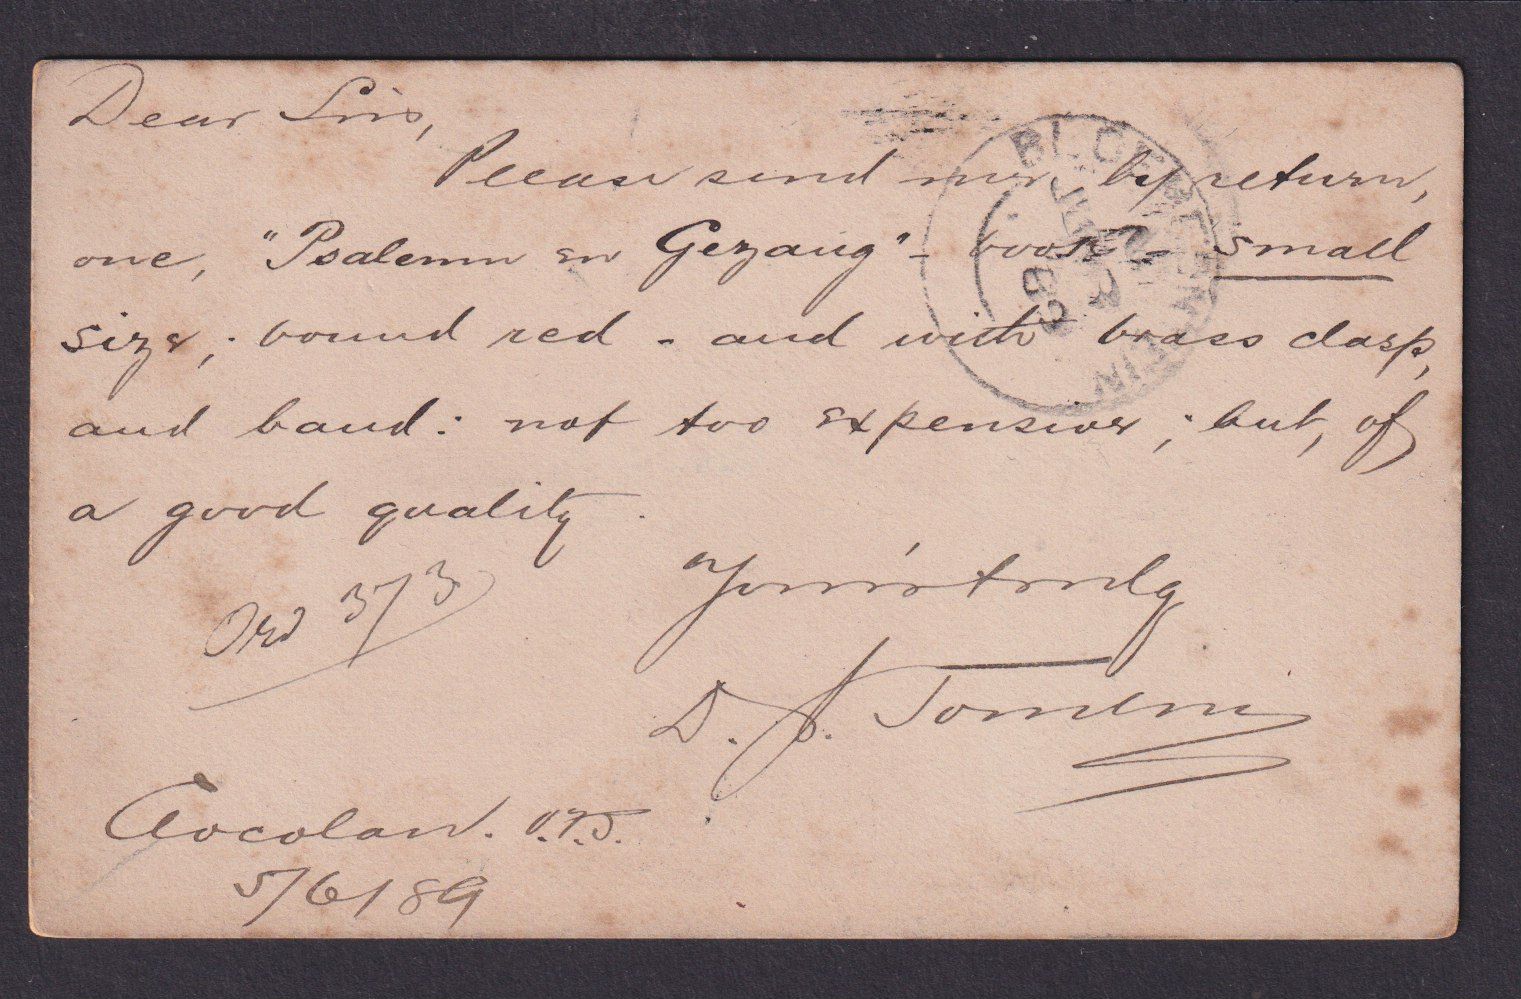 Dear Sirs,
Please send me, by return,
one, "Psalmen en Gezang" - book - small
size; bound red - and with brass clasp,
and band: not too expensive; but, of
a good quality.
Yours truly
D. J.
Ord 373
Cocolan. O.F.S.
5/6/89
BLOEMFONTEIN
JU
89